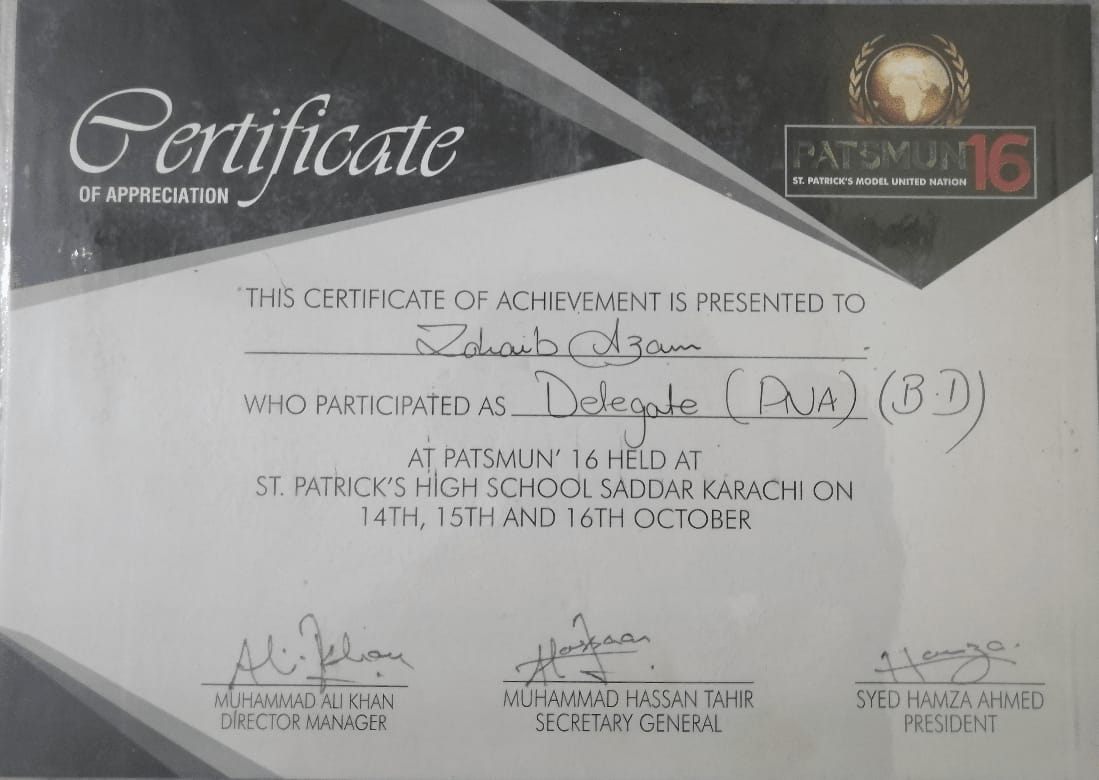 Certificate
OF APPRECIATION
PATSMUN 16
ST. PATRICK'S MODEL UNITED NATION
THIS CERTIFICATE OF ACHIEVEMENT IS PRESENTED TO
Zohaib Azam
WHO PARTICIPATED AS Delegate (PNA) (B.D)
AT PATSMUN' 16 HELD AT
ST. PATRICK'S HIGH SCHOOL SADDAR KARACHI ON
14TH, 15TH AND 16TH OCTOBER
Ali Khan
Hassaan
Hamza
MUHAMMAD ALI KHAN
MUHAMMAD HASSAN TAHIR
SYED HAMZA AHMED
DIRECTOR MANAGER
SECRETARY GENERAL
PRESIDENT